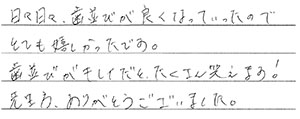 日々日々、歯並びが良くなっていったので
とても嬉しかったです。
歯並びがキレイだと、たくさん笑えます!
先生方、ありがとうございました。